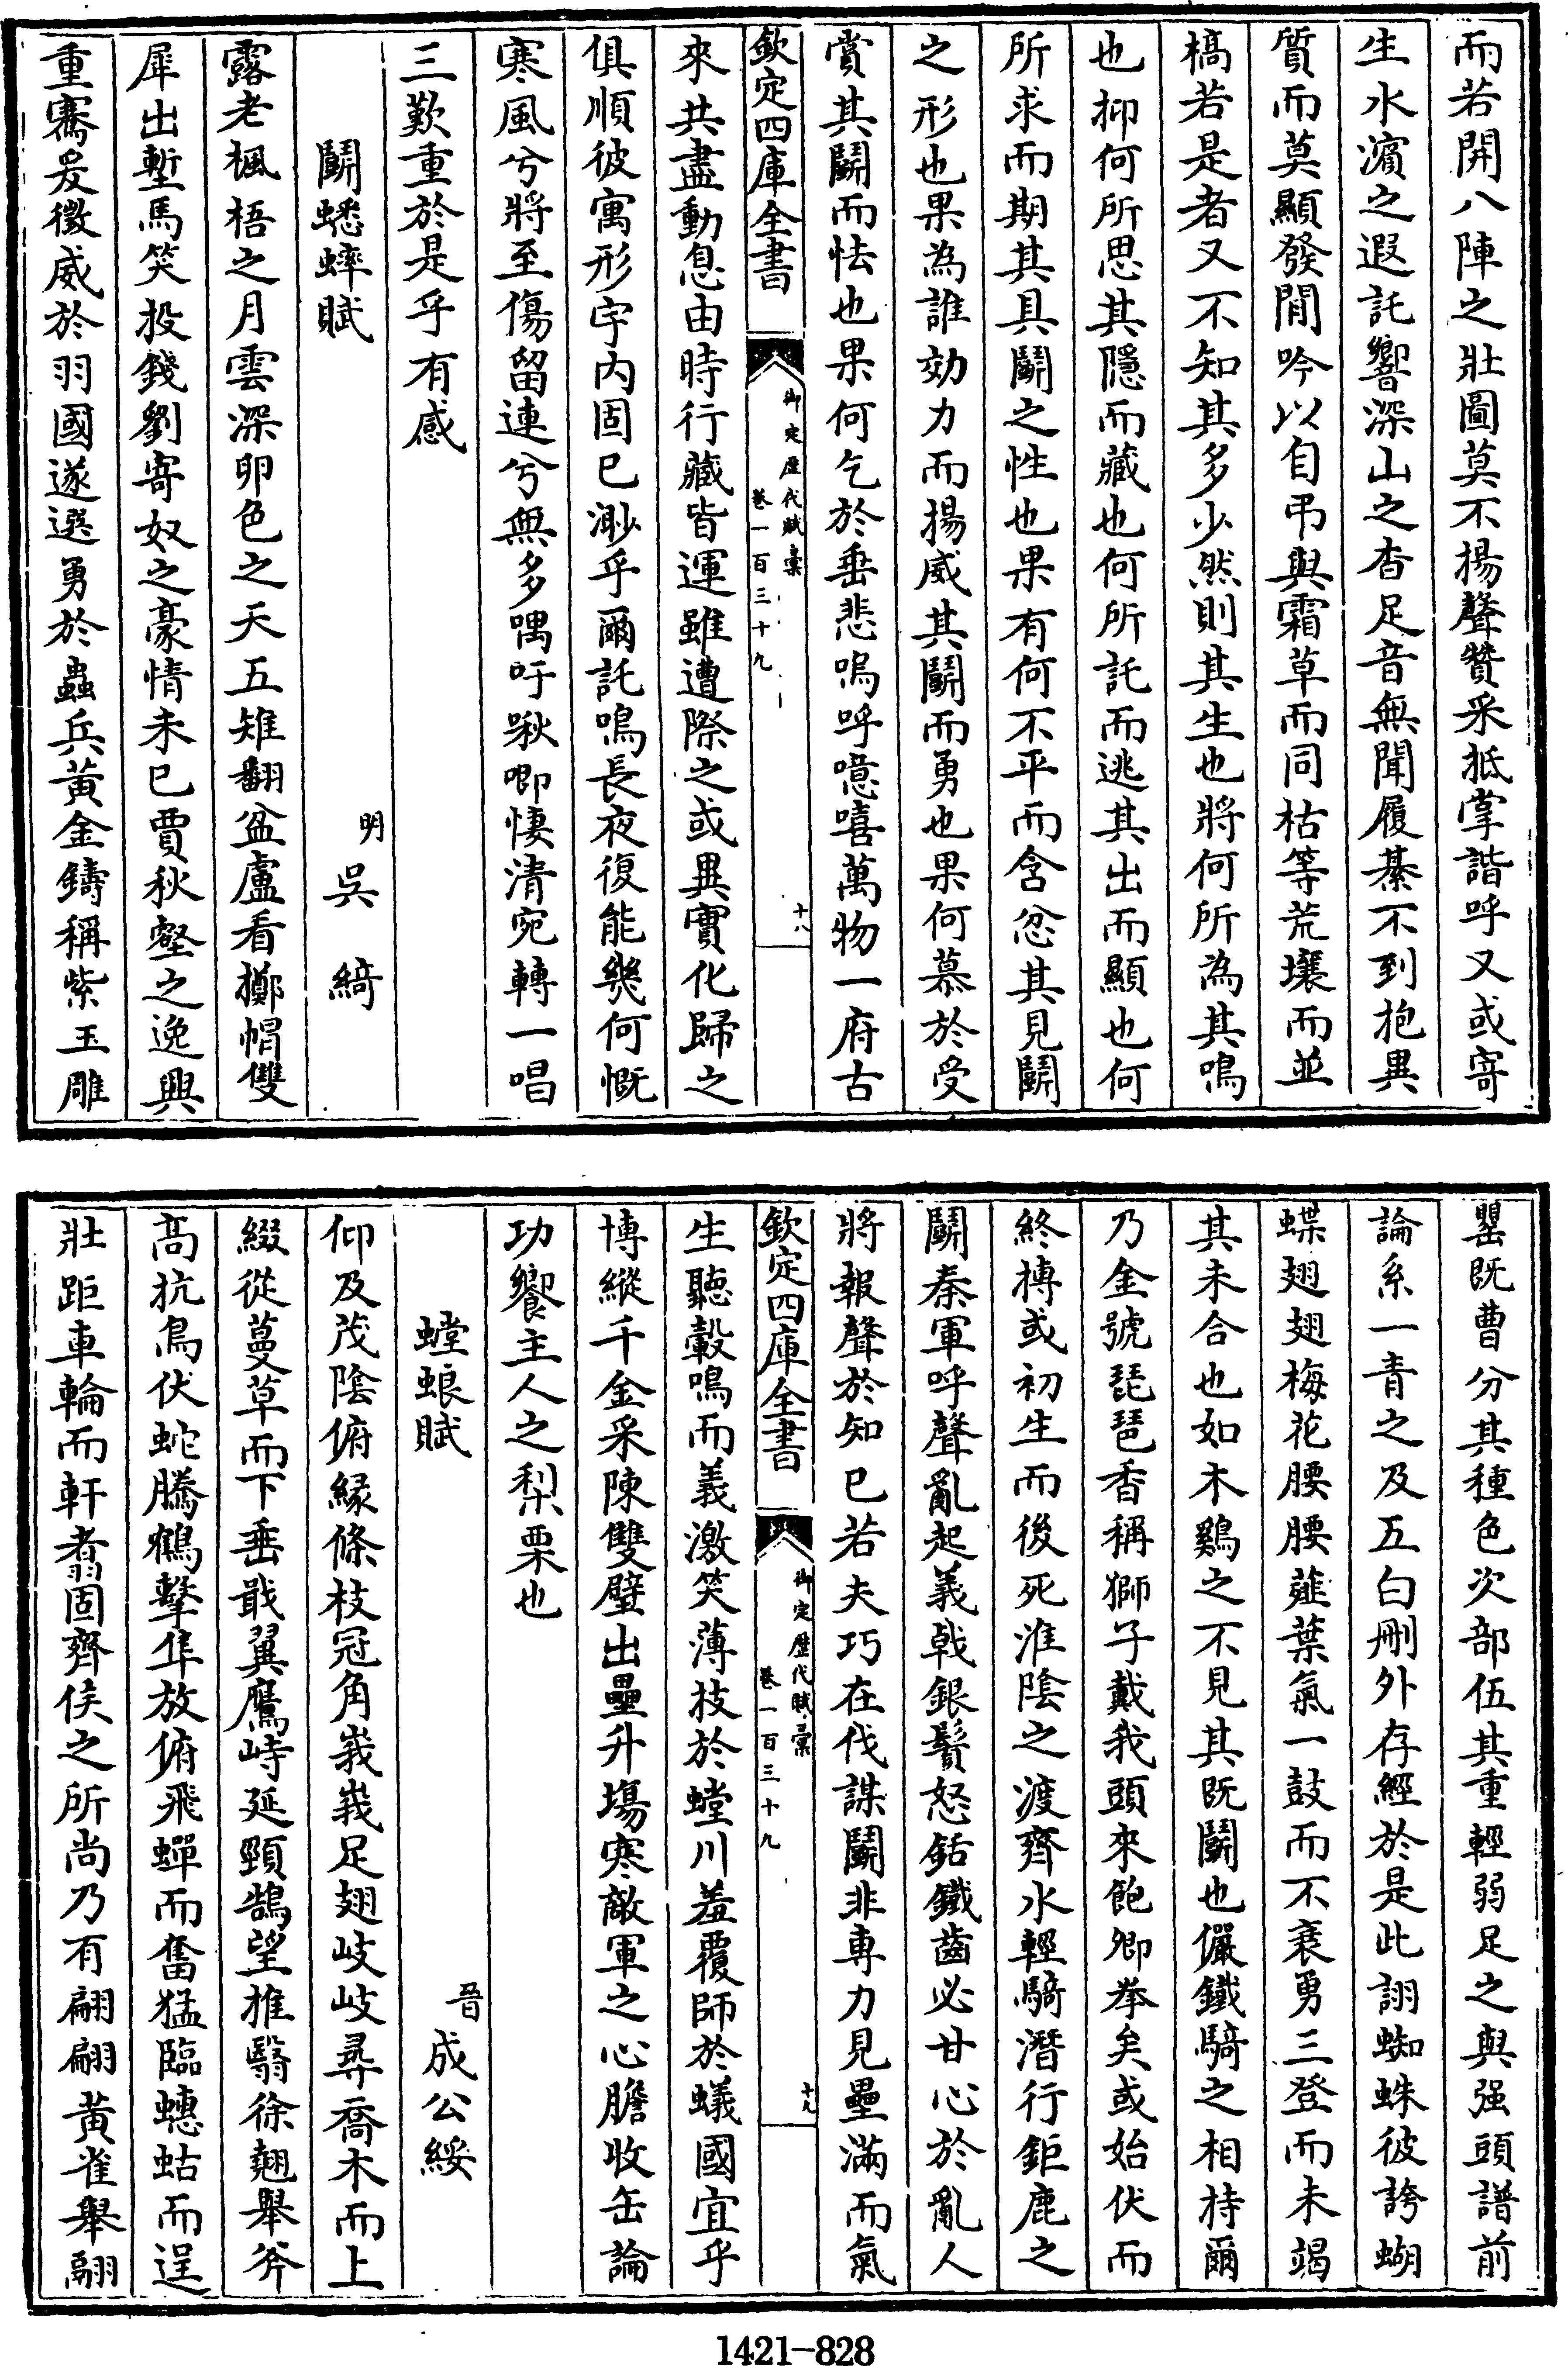 而若開八陣之壯圖莫不揚聲贊采抵掌諧呼又或寄
生水濵之遐託響深山之杳足音無聞履綦不到抱異
質而莫顯發閒吟以自弔與霜草而同枯等荒壤而並
槁若是者又不知其多少然則其生也將何所為其鳴
也抑何所思其隱而藏也何所託而逃其出而顯也何
所求而期其具鬭之性也果有何不平而含忿其見鬭
之形也果為誰効力而揚威其鬭而勇也果何慕於受
賞其鬭而怯也果何乞於垂悲嗚呼噫嘻萬物一府古
欽定四庫全書
御定歴代賦彚
卷一百三十九
十八
來共盡動息由時行藏皆運雖遭際之或異實化歸之
俱順彼寓形宇内固已渺乎爾託鳴長夜復能幾何慨
寒風兮將至傷留連兮無多喁吁啾唧悽清宛轉一唱
三歎重於是乎有感
鬭蟋蟀賦
明吳綺
露老楓梧之月雲深卵色之天五雉翻盆盧看擲帽雙
犀出塹馬笑投錢劉寄奴之豪情未已賈秋壑之逸興
重騫爰徵威於羽國遂選勇於蟲兵黃金鑄稱紫玉雕
罌既曹分其種色次部伍其重輕弱足之與强頭譜前
論系一青之及五白刪外存經於是此詡蜘蛛彼誇蝴
蝶翅翅梅花腰腰薤葉氣一鼓而不衰勇三登而未竭
其未合也如木鷄之不見其既鬭也儼鐵騎之相持爾
乃金號琵琶香稱獅子戴我頭來飽卿拳矣或始伏而
終搏或初生而後死淮陰之渡齊水輕騎潛行鉅鹿之
鬭秦軍呼聲亂起義戟銀鬚怒銛鐵齒必甘心於亂人
將報聲於知已若夫巧在伐謀鬭非専力見壘滿而氣
欽定四庫全書
御定歴代賦彚
卷一百三十九
十九
生聽轂鳴而義激笑薄技於螳川羞覆師於蟻國宜乎
博縱千金采陳雙璧出壘升塲寒敵軍之心膽收缶論
功饗主人之梨栗也
螳蜋賦
晉成公綏
仰及茂隂俯緣條枝冠角峩峩足翅岐岐尋喬木而上
綴從蔓草而下垂戢翼鷹峙延頸鵠望推翳徐翹舉斧
高抗鳥伏蛇騰鶴擊隼放俯飛蟬而奮猛臨蟪蛄而逞
壯距車輪而軒翥固齊侯之所尚乃有翩翩黃雀舉翮
1421-828